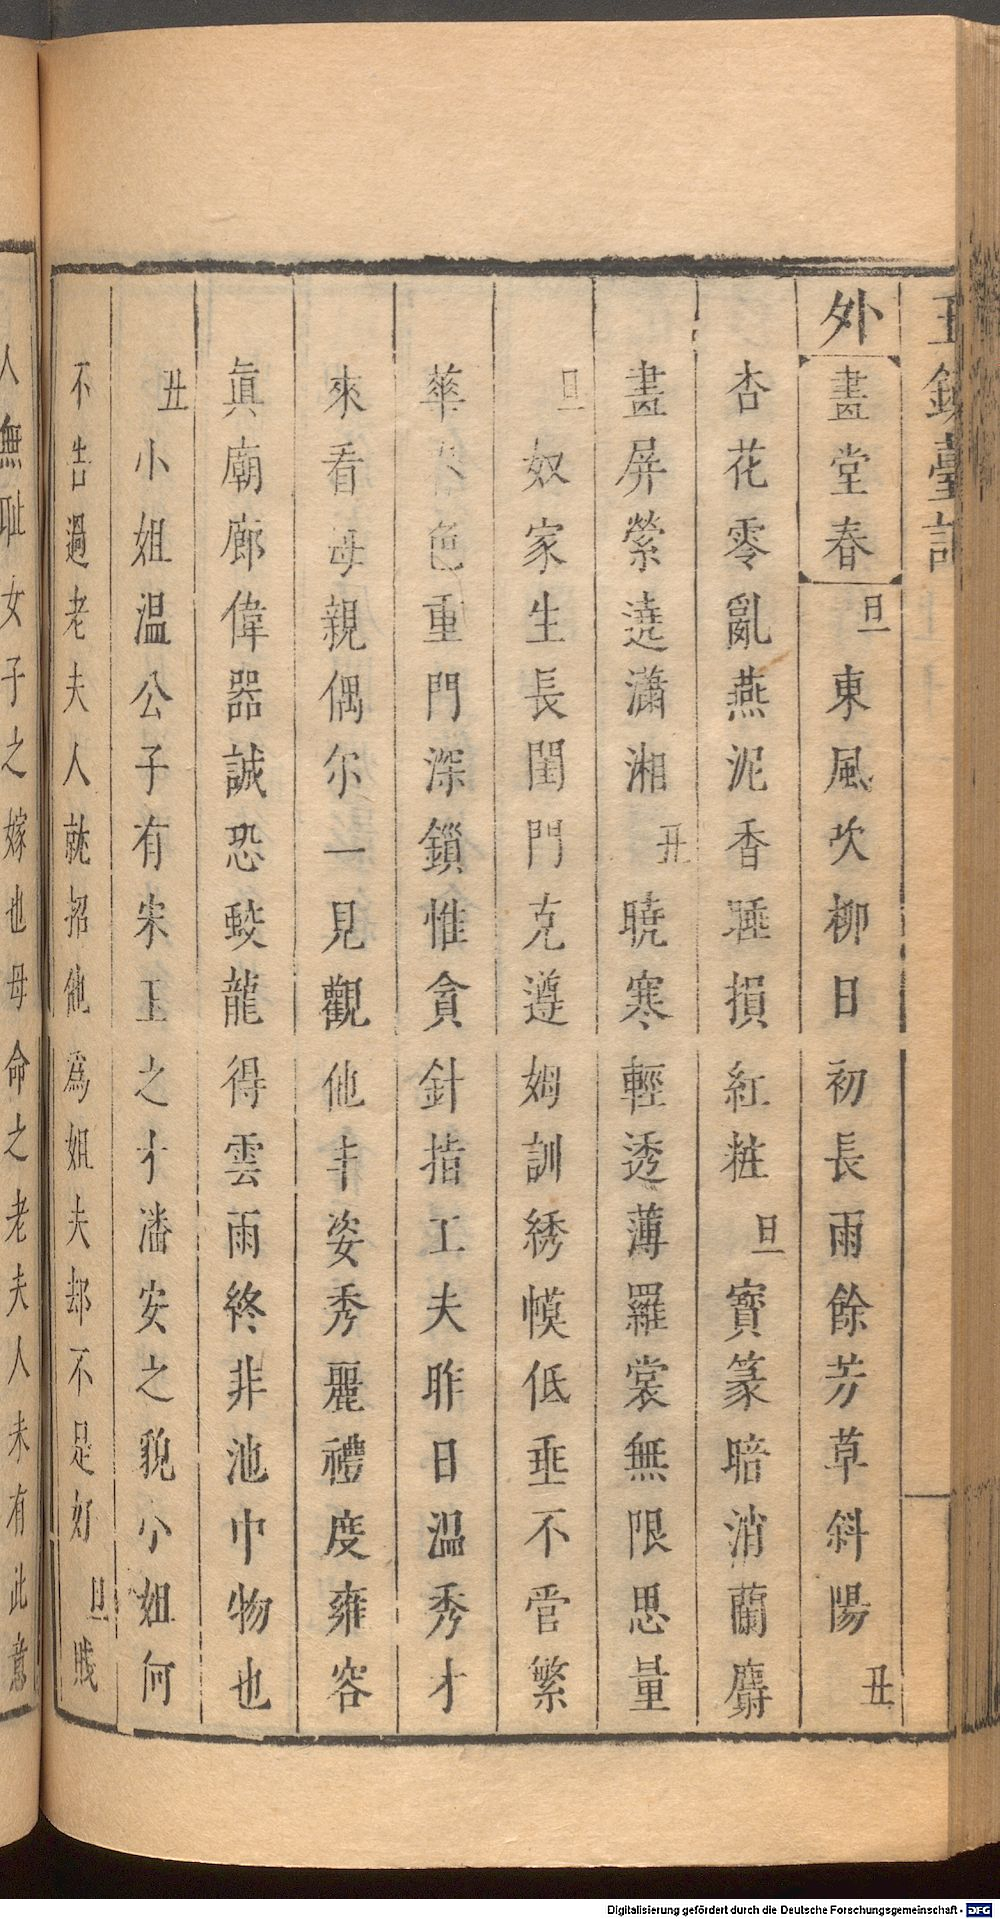 玉鏡臺記
外 畫堂春 旦 東風吹柳日初長雨餘芳草斜陽 丑
杏花零亂燕泥香睡損紅粧 旦 寳篆暗消蘭麝
畫屏縈遶瀟湘 丑 曉寒輕透薄羅裳無限思量
旦 奴家生長閨門克遵姆訓綉幙低垂不管繁
華 色重門深鎖惟貪針指工夫昨日温秀才
來看母親偶尔一見觀他丰姿秀麗禮度雍容
眞廟廊偉器誠恐蛟龍得雲雨終非池中物也
丑 小姐温公子有宋玉之才潘安之貌小姐何
不告過老夫人就招他爲姐夫却不是好 旦 賤
人無耻女子之嫁也母命之老夫人未有此意
Digitalisierung gefördert durch die Deutsche Forschungsgemeinschaft - DFG